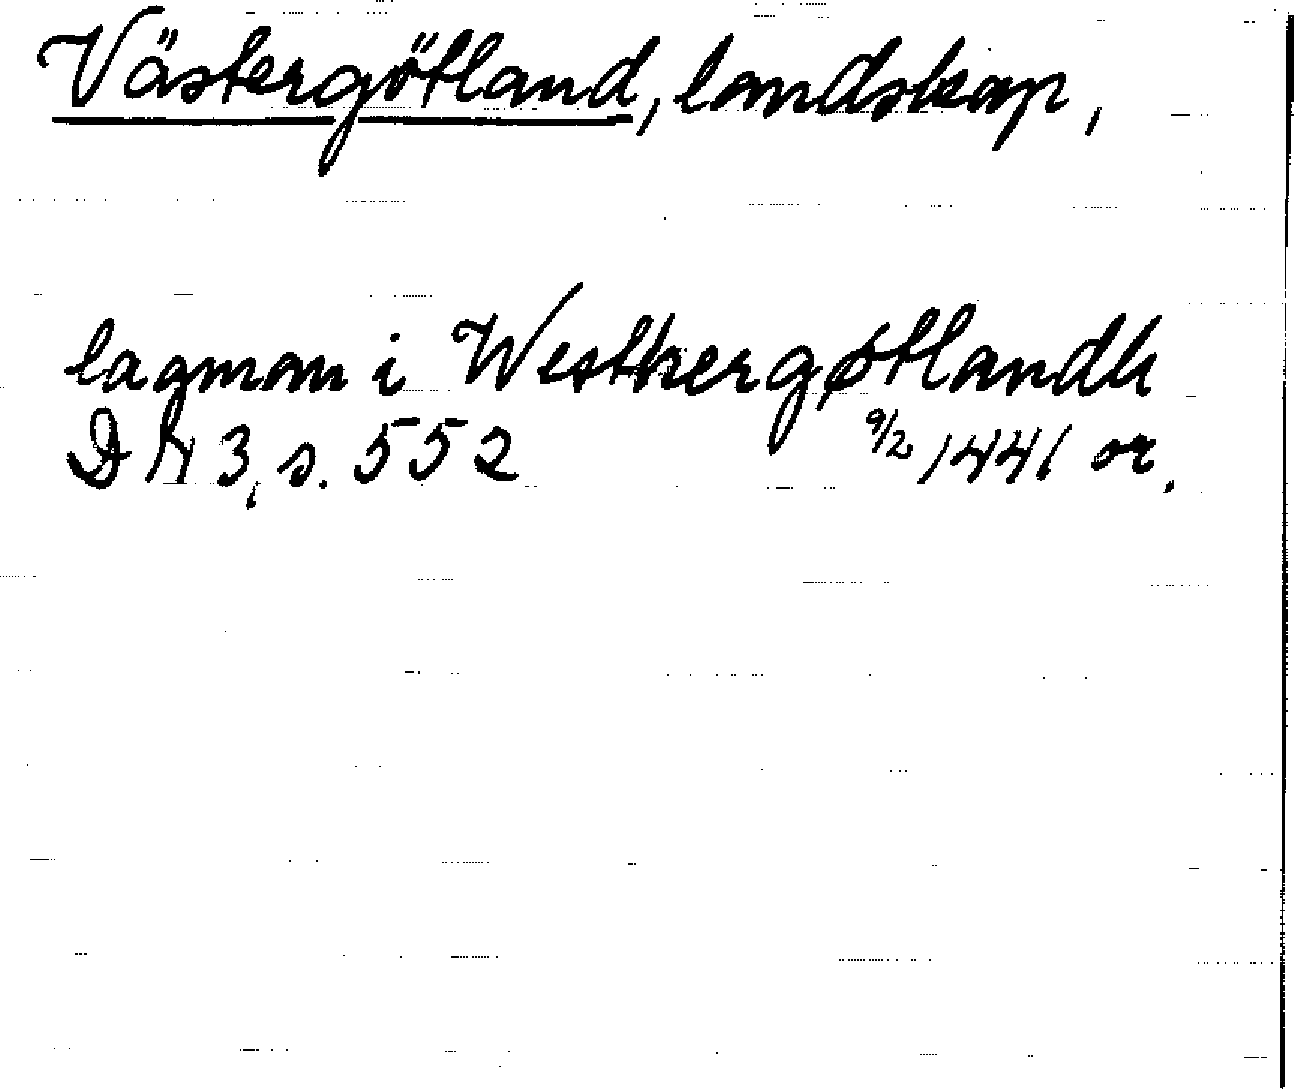 Västergötland, landskap,
lagman i Westhergøtlandh
DN 3, s. 552 9/2 1441 or.